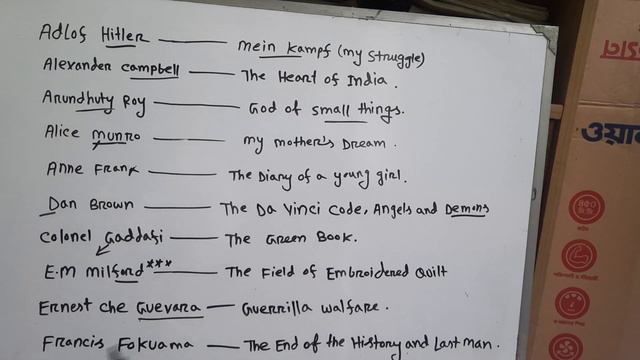 Adlof Hitler — mein kampf (my struggle)
Alexander campbell — The Heart of India.
Arundhuty Roy — God of small things.
Alice munro — my mother's Dream.
Anne Frank — The Diary of a young girl.
Dan Brown — The Da Vinci code, Angels and Demons
Colonel Gaddafi — The Green Book.
E.M milford*** — The Field of Embroidered Quilt
Ernest che Guevara — Guerrilla walfare.
Francis Fokuama — The End of the History and Last man.
ওয়া